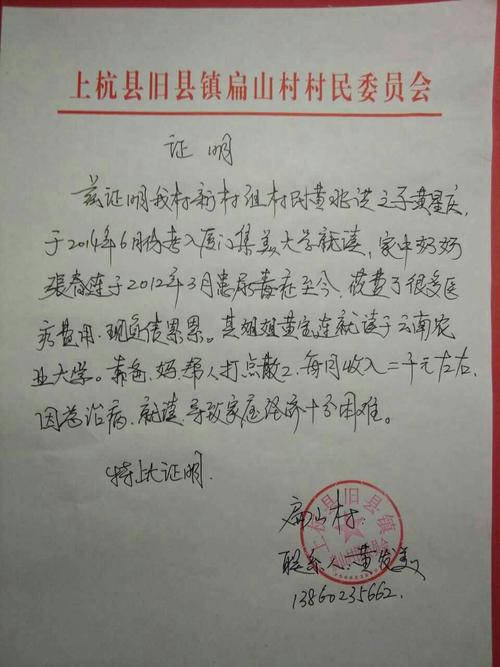 上杭县旧县镇扁山村村民委员会
证明
兹证明我村新村组村民黄进之子黄星庆,
于2014年6月份考入厦门集美大学就读,家中奶奶
张春连于2012年3月患尿毒症至今,花费了很多医
疗费用.现负债累累。其姐姐黄宝连就读于云南农
业大学。靠爸、妈.帮人打点散工,每月收入二千元左右,
因为治病、就读.导致家庭经济十分困难。
特此证明.
扁山村.
联系人.黄发美
13860235662.
上杭县旧县镇